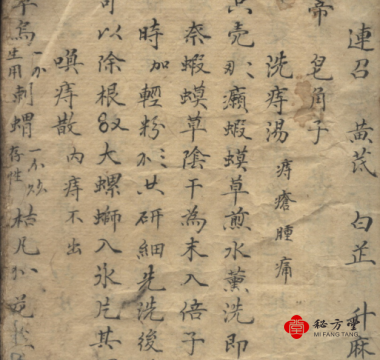 連召 黃芪 白芷 升麻
帝 皂角子
洗痔湯 痔瘡腫痛
壳 癩蝦蟆草煎水薰洗即
蝦蟆草陰干為末入倍子
時加輕粉 共研細先洗後
可以除根 又大螺螄入氷片其
喚痔散 內痔不出
烏 生用 刺蝟 存性 枯凡
秘方堂
MI FANG TANG